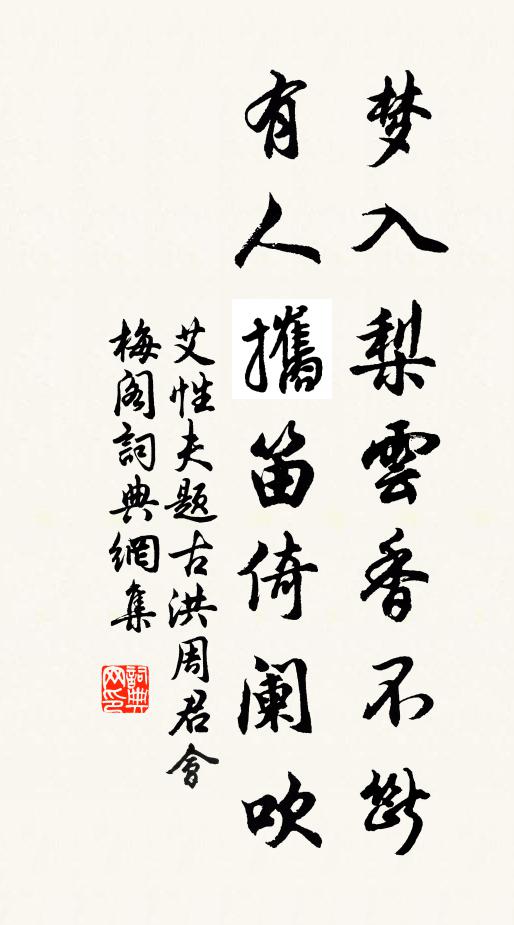 梦入梨雲香不斷
有人攜笛倚阑吹
艾性夫题古洪周君會
梅阁詞典網集
詞典网印